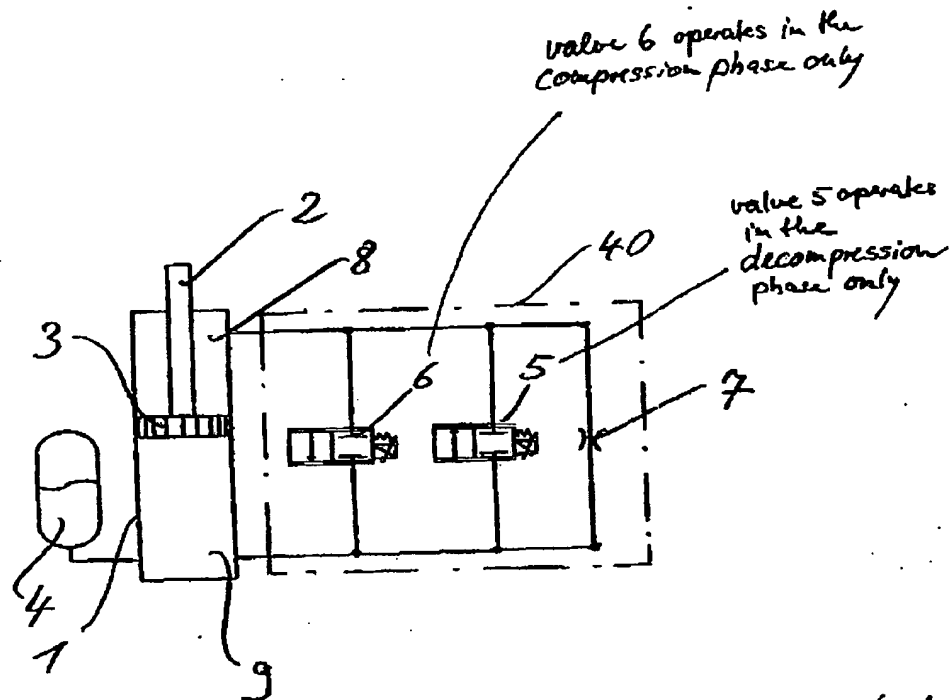 valve 6 operates in the
compression phase only
valve 5 operates
in the
decompression
phase only
2
8
40
3
6
5
7
4
1
9